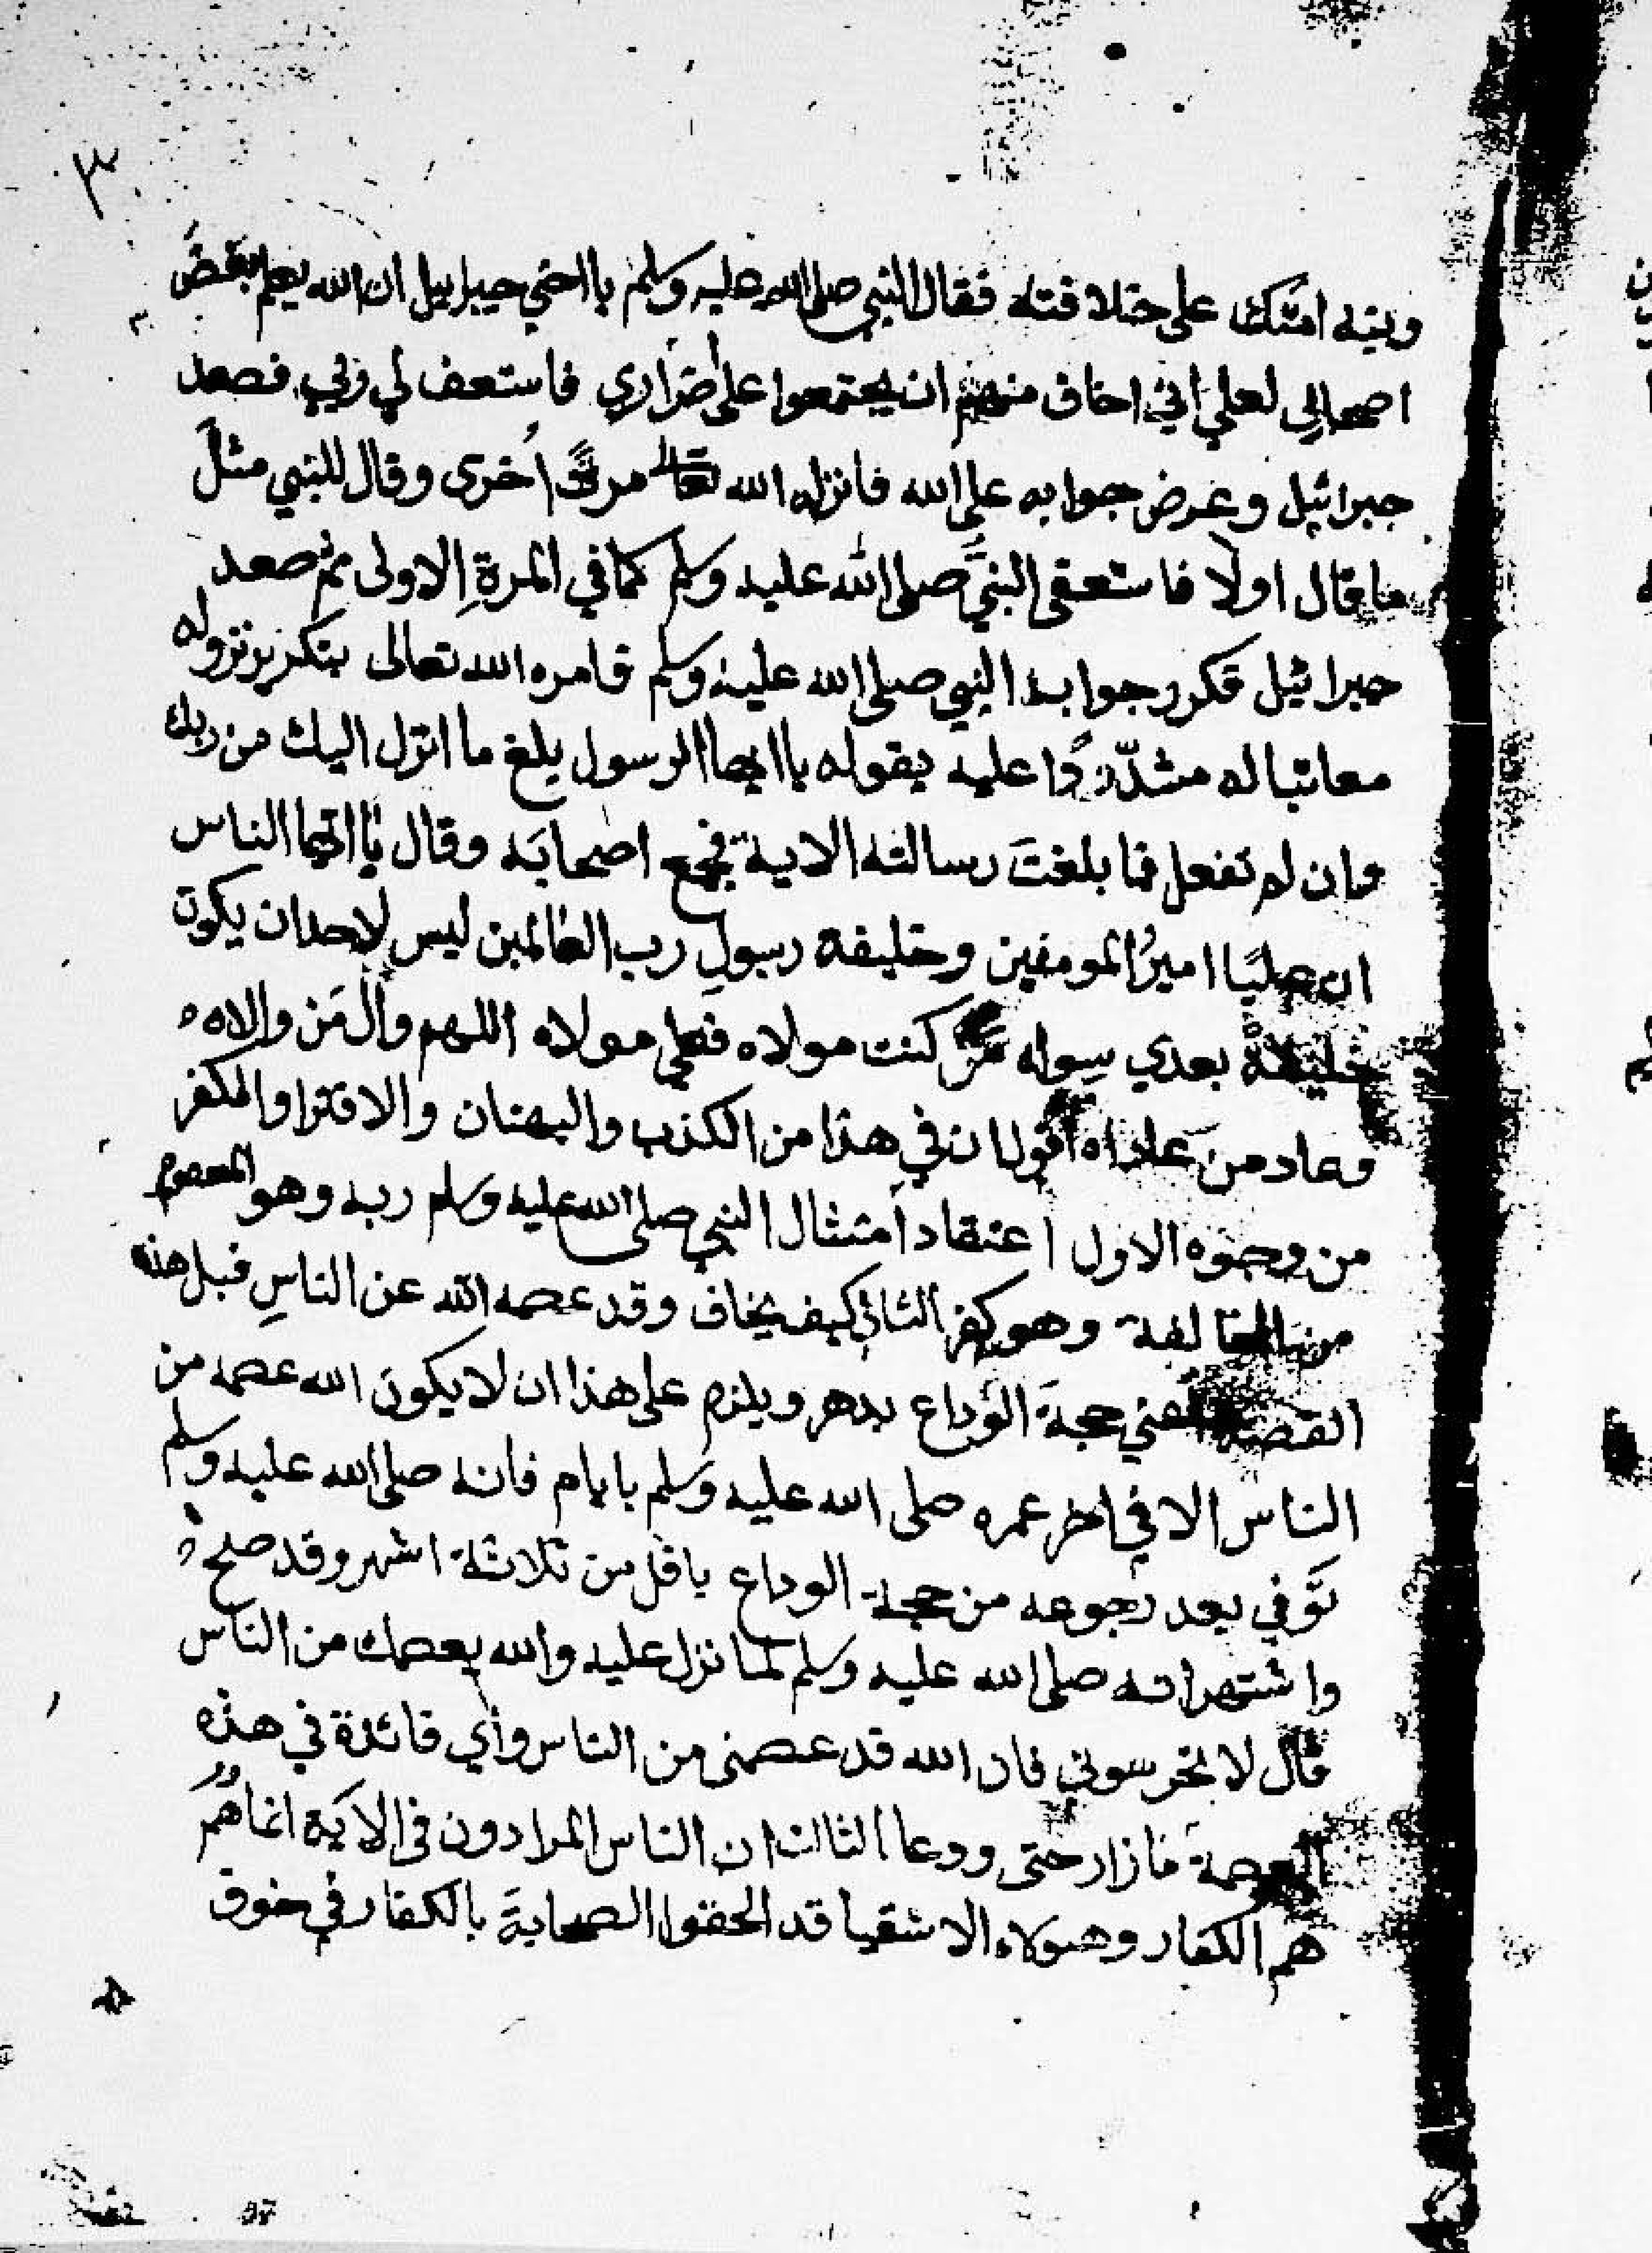 ٣
ونبه امتك على خلافته فقال النبي صلى الله عليه وسلم يا اخي جبرايل ان الله يعلم بغض
اصحابي لعلي اني اخاف منهم ان يجتمعوا على اضراري فاستعف لي ربي فصعد
جبرائيل وعرض جوابه على الله فانزله الله تعالى مرة اُخرى وقال للنبي مثل
ما قال اولا فاستعفى النبيَّ صلى الله عليه وسلم كما في المرةِ الاولى ثم صعد
جبرائيل فكرر جواب النبي صلى الله عليه وسلم فامره الله تعالى بتكرير نزوله
معاتبا له مشدّدًا عليه بقوله يا ايها الرسول بلغ ما انزل اليك من ربك
وان لم تفعل فما بلغتَ رسالته الاية فجمع اصحابَه وقال يا ايها الناس
ان عليًا اميرُ المومنين وخليفة رسولِ رب العالمين ليس لاحد ان يكون
خليفة بعدي سواه من كنت مولاه فعلي مولاه اللهم وال مَن والاه
وعاد من عاداه اقول ان في هذا من الكذب والبهتان والافترا والكفر
من وجوه الاول اعتقاد امتثال النبي صلى الله عليه وسلم ربه وهو المعصوم
من المخالفة وهو كفر الثاني كيف يخاف وقد عصمه الله عن الناسِ قبل هذه
القصة اعني حجةَ الوداع بدهر ويلزم على هذا ان لا يكون الله عصمه من
الناس الا في اخر عمره صلى الله عليه وسلم بايام فانه صلى الله عليه وسلم
توفي بعد رجوعه من حجة الوداع باقل من ثلاثة اشهر وقد صلح
واشتهر انه صلى الله عليه وسلم لما نزل عليه والله يعصمك من الناس
قال لا تحرسوني فان الله قد عصمني من الناس واي فائدة في هذه
العصمة الثالث ان الناس المرادون في الاَية انما هُم
هم الكفار وهولاء الاشقيا قد الحقوا الصحابةَ بالكفار في خوف